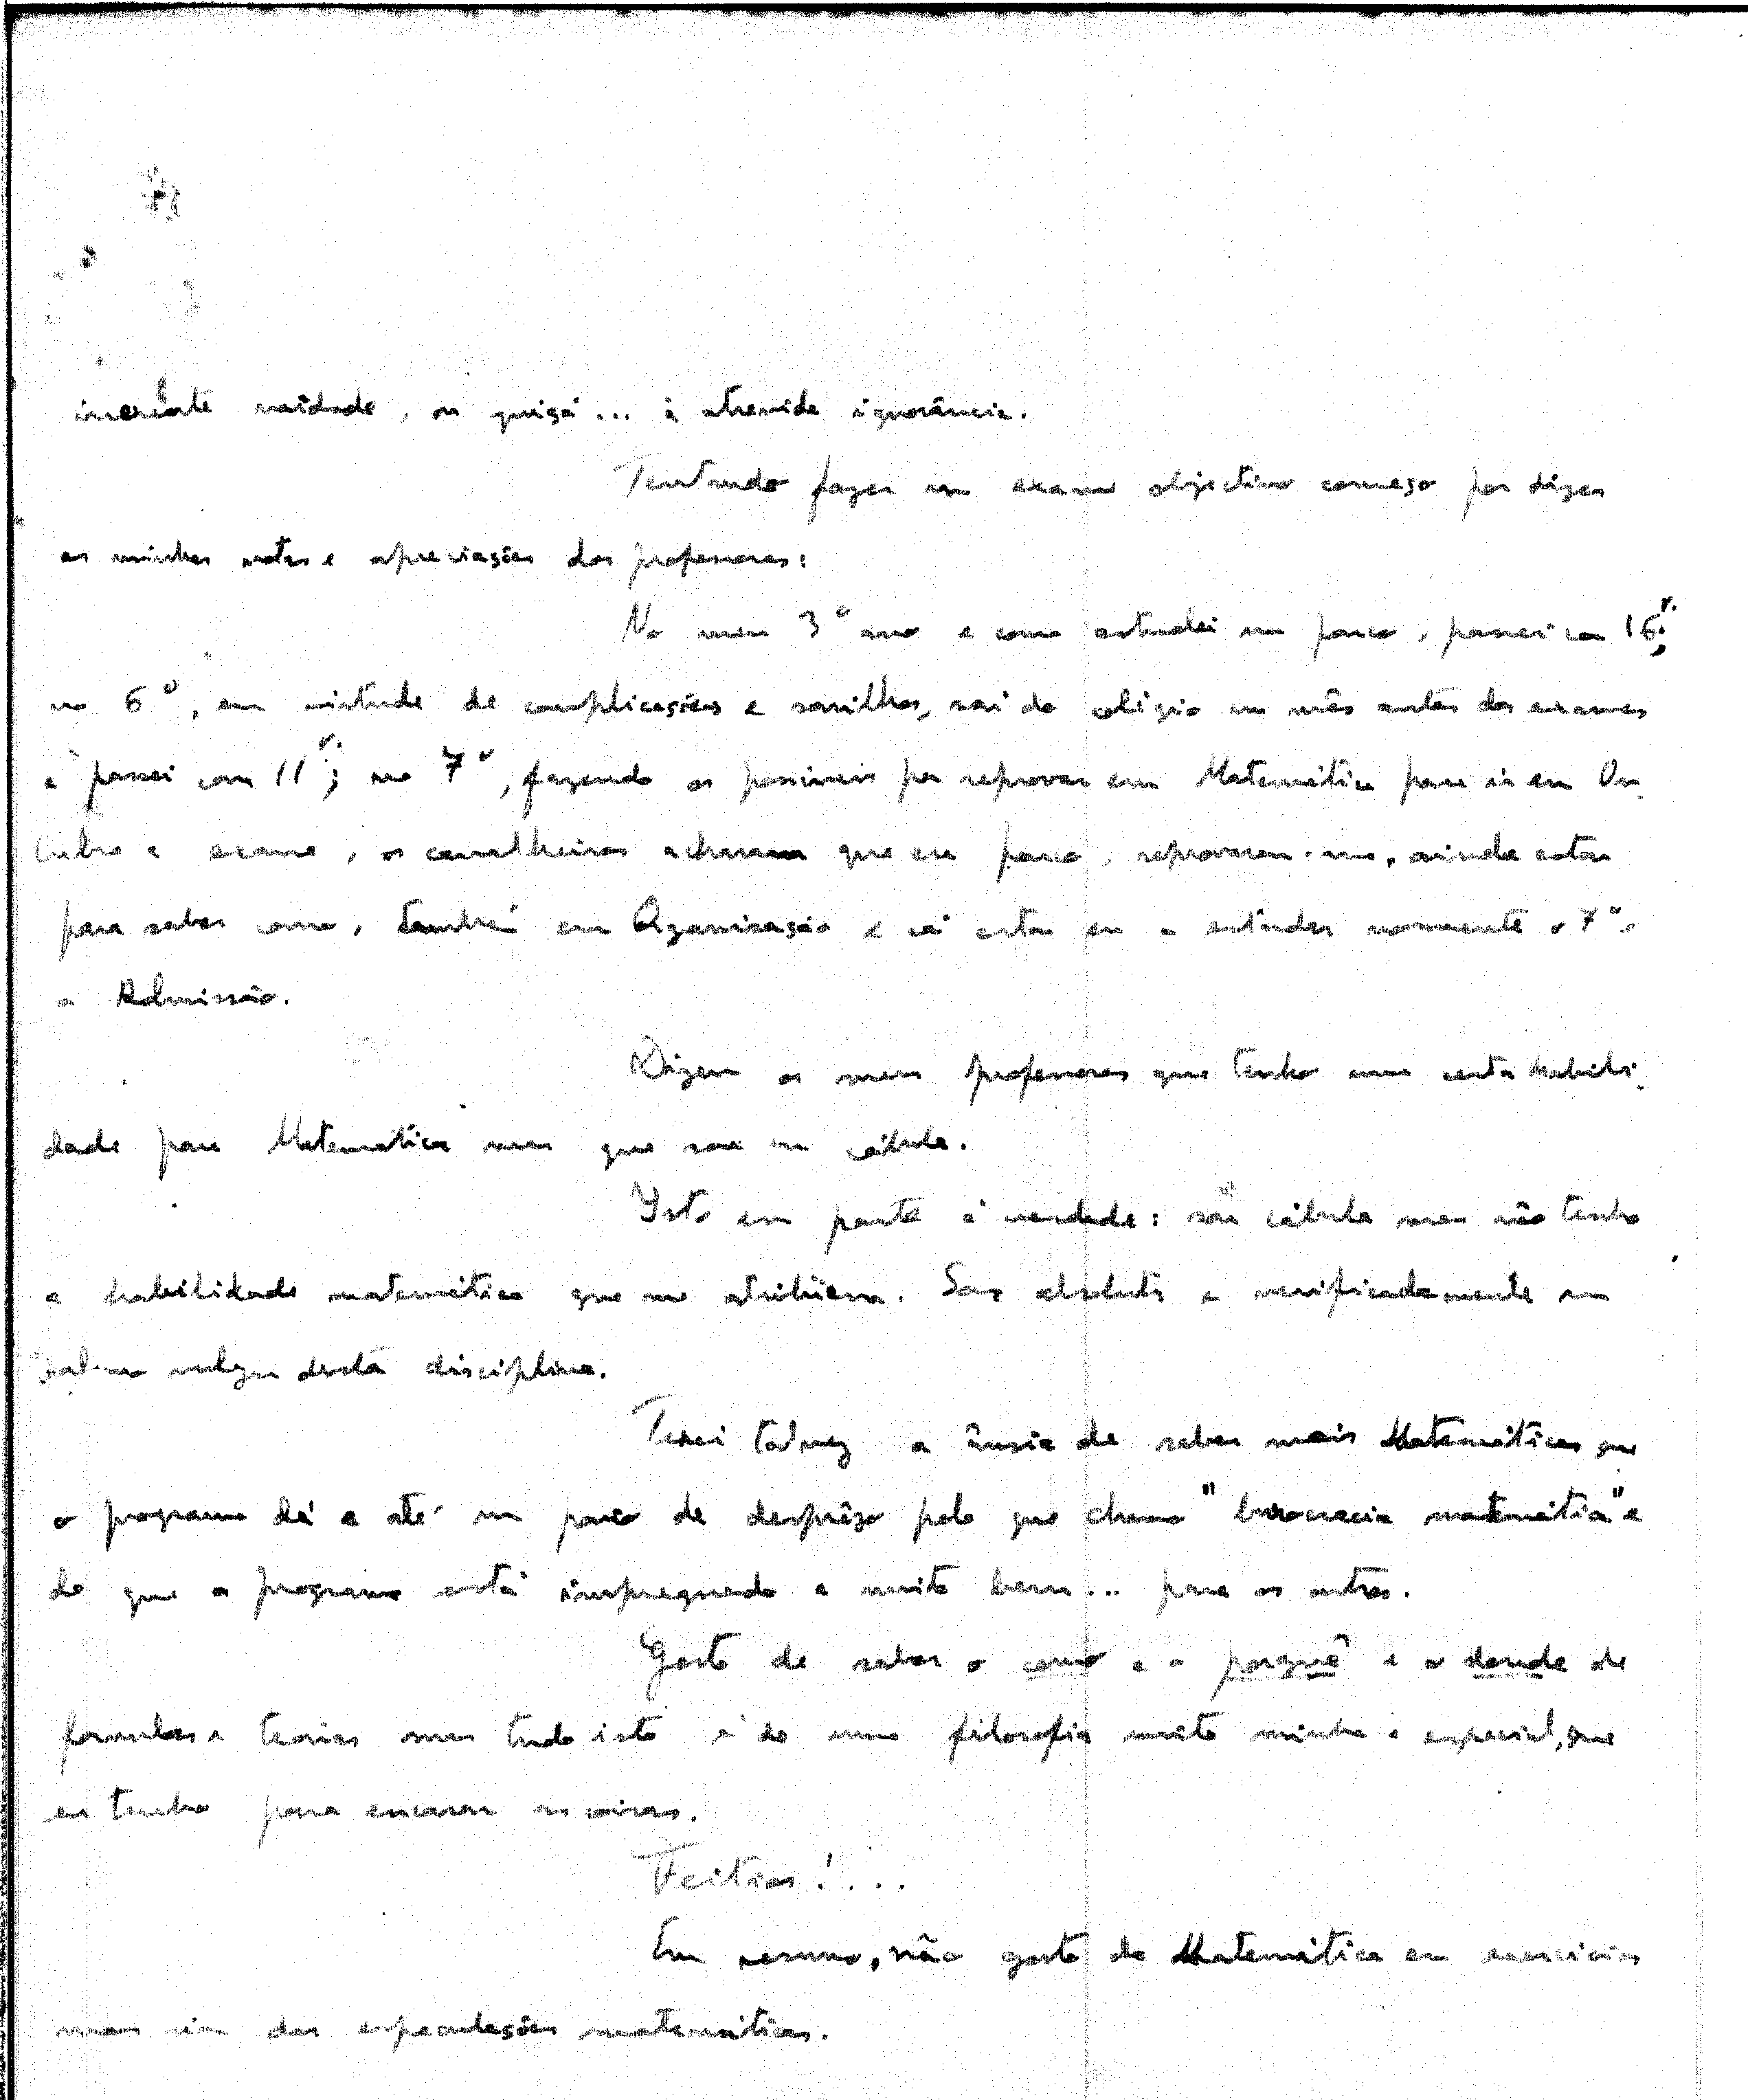 vaidade, ou quiçá... à atrevida ignorância.
Tentando fazer um exame objectivo começo por dizer
as minhas notas e apreciações dos professores:
No meu 3º ano e como estudei um pouco, passei com 16v.;
no 6º, em virtude de complicações e sarilhos, saí do colégio um mês antes dos exames
e passei com 11v.; no 7º, fazendo os possíveis por reprovar em Matemática para ir em Ou-
tubro a exame, os cavalheiros acharam que era pouco, reprovaram-me, ainda estou
para saber como, também em Organização e cá estou eu a estudar novamente o 7º.
a Admissão.
Dizem os meus professores que tenho uma certa habili-
dade para Matemática mas que sou um cábula.
Isto em parte é verdade: sou cábula mas não tenho
a habilidade matemática que me atribüem. Sou absoluta e verificadamente um
vulgar desta disciplina.
Terei talvez a ânsia de saber mais Matemáticas que
o programa dá e até um pouco de desprêzo pelo que chamo "burocracia matemática" e
de que o programa está impregnado e muito bem... para os outros.
Gosto de saber o como e o porquê e o donde de
formulas e teorias mas tudo isto é de uma filosofia muito minha e especial, que
eu tenho para encarar as coisas.
Feitios!...
Em resumo, não gosto da Matemática em exercicios
mas sim das especulações matemáticas.